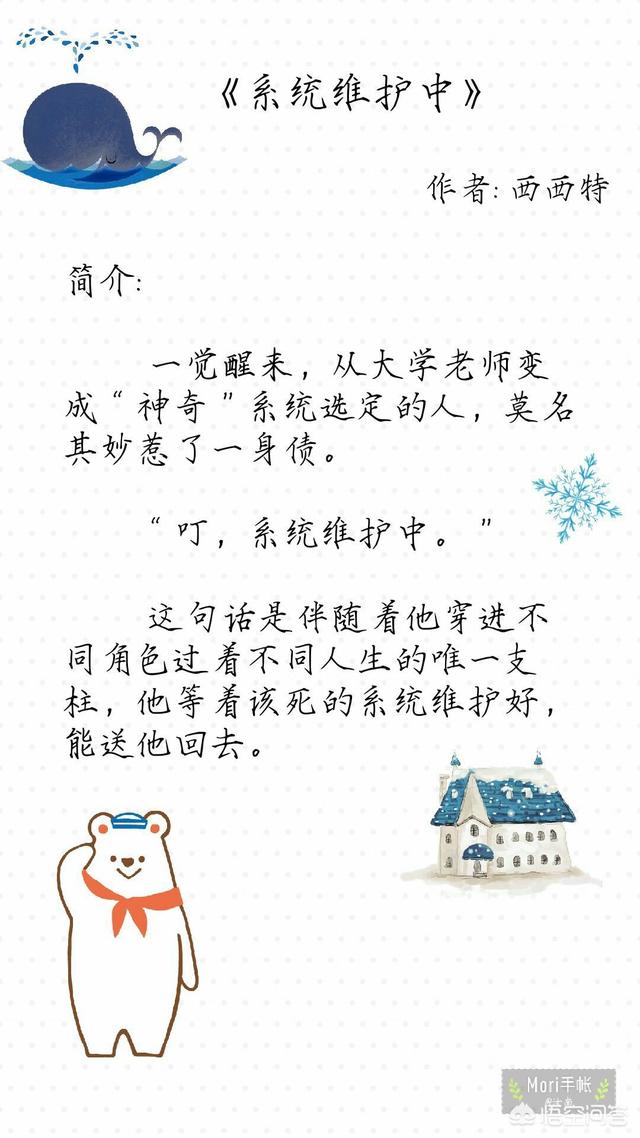 《系统维护中》
作者: 西西特
简介:
一觉醒来，从大学老师变
成“神奇”系统选定的人，莫名
其妙惹了一身债。
“叮，系统维护中。”
这句话是伴随着他穿进不
同角色过着不同人生的唯一支
柱，他等着该死的系统维护好，
能送他回去。
Mori手帐
悟空问答